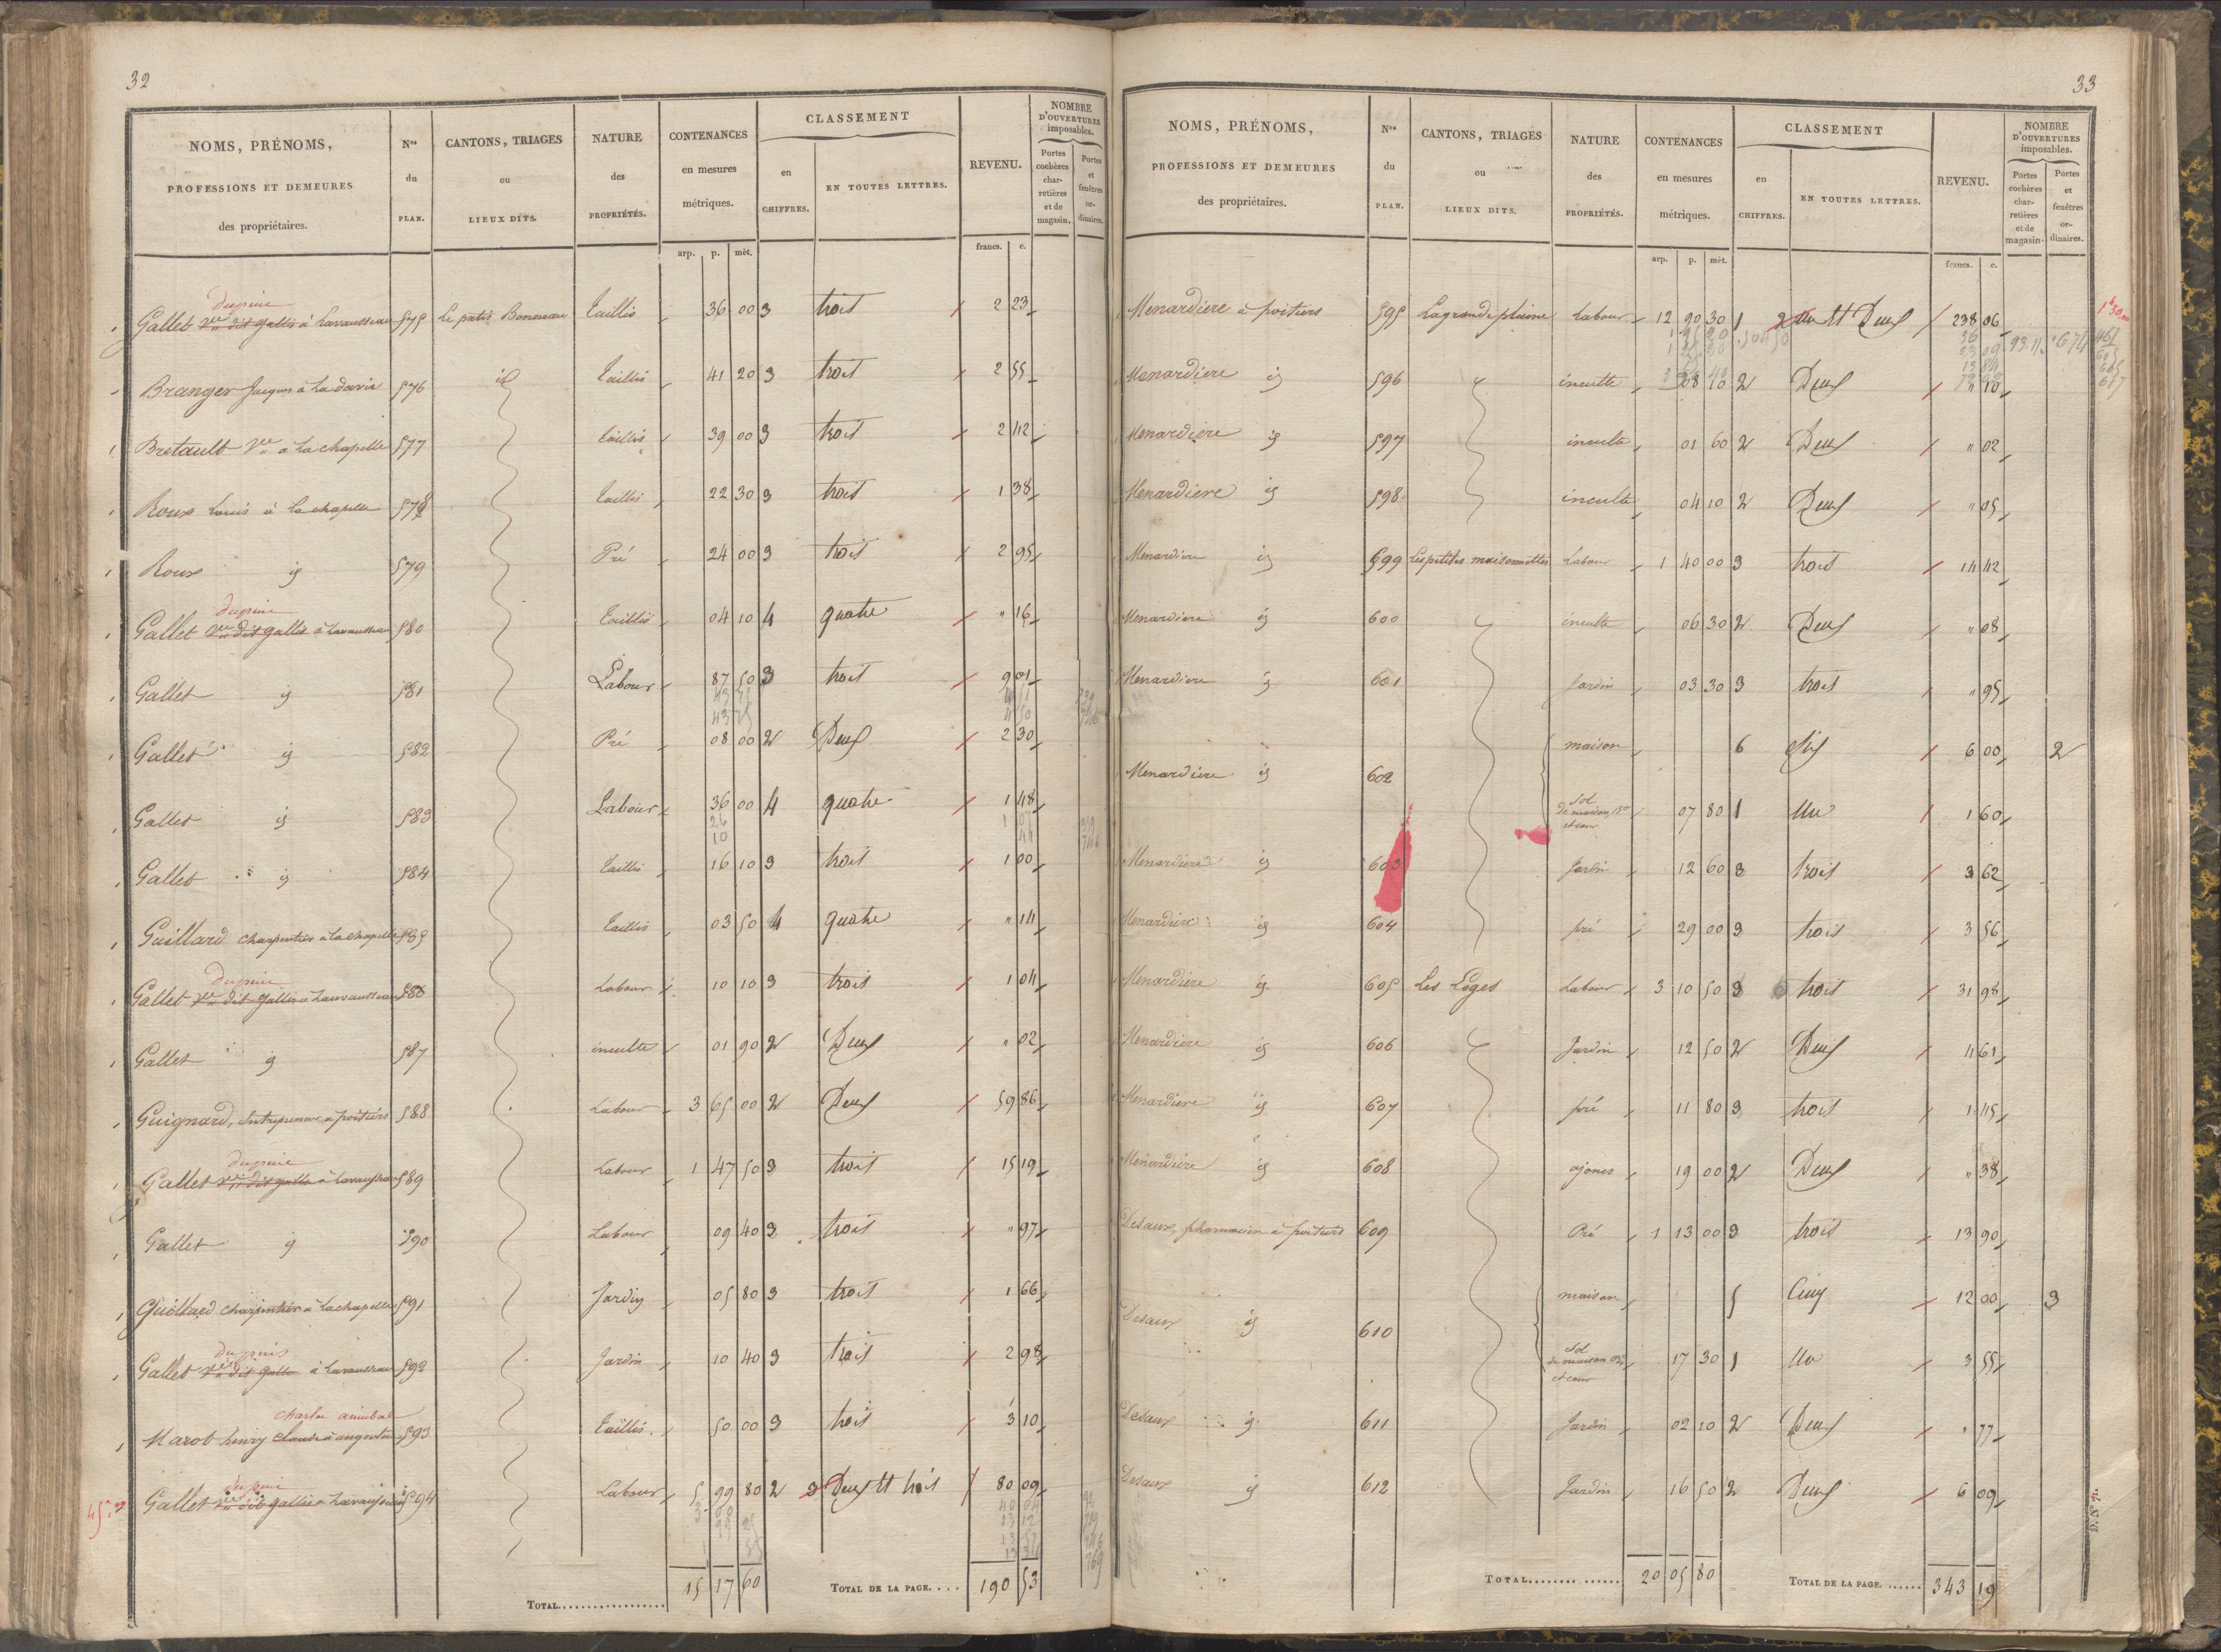 32
NOMS, PRÉNOMS,
PROFESSIONS ET DEMEURES
des propriétaires.
Nos
du
PLAN.
CANTONS, TRIAGES
ou
LIEUX DITS.
NATURE
des
PROPRIÉTÉS.
CONTENANCES
en mesures
métriques.
CLASSEMENT
en
CHIFFRES.
EN TOUTES LETTRES.
REVENU.
NOMBRE
D'OUVERTURES
imposables.
Portes
cochères
char-
retières
et de
magasin.
Portes
et
fenêtres
or-
dinaires.
arp. p. mèt. francs. c.
dupuis
Gallet Vve dit gallis à Lavausseau 575 Le patis Bonneau Taillis 36 00 3 trois 2 23
Branger Jacques à La davie 576 id Taillis 41 20 3 trois 2 55
Bretault Vve à La chapelle 577 Taillis 39 00 3 trois 2 42
Roux Louis à La chapelle 578 Taillis 22 30 3 trois 1 38
Roux id 579 Pré 24 00 3 trois 2 95
dupuis
Gallet Vve dit gallis à Lavausseau 580 Taillis 04 10 4 quatre " 16
Gallet id 581 Labour 87 50 3 trois 9 01
Gallet id 582 Pré 08 00 2 Deux 2 30
Gallet id 583 Labour 36 00 4 quatre 1 48
Gallet id 584 Taillis 16 10 3 trois 1 00
Guillard charpentier à la chapelle 585 Taillis 03 50 4 quatre " 14
dupuis
Gallet Vve dit gallis à Lavausseau 586 Labour 10 10 3 trois 1 04
Gallet id 587 inculte 01 90 2 Deux " 02
Guignard, Entrepreneur à poitiers 588 Labour 3 65 00 2 Deux 59 86
dupuis
Gallet Vve dit gallis à Lavausseau 589 Labour 1 47 50 3 trois 15 19
Gallet id 590 Labour 09 40 3 trois " 97
Guillard charpentier à Lachapelle 591 Jardin 05 80 3 trois 1 66
dupuis
Gallet Vve dit gallis à Lavausseau 592 Jardin 10 40 3 trois 2 98
charles annibal
Marot henry Claude à angoulême 593 Taillis 50 00 3 trois 3 10
dupuis
Gallet Vve dit gallis à Lavausseau 594 Labour 5 99 80 2 3 Deux et trois 80 09
TOTAL 15 17 60 TOTAL DE LA PAGE. 190 53
33
NOMS, PRÉNOMS,
PROFESSIONS ET DEMEURES
des propriétaires.
Nos
du
PLAN.
CANTONS, TRIAGES
ou
LIEUX DITS.
NATURE
des
PROPRIÉTÉS.
CONTENANCES
en mesures
métriques.
CLASSEMENT
en
CHIFFRES.
EN TOUTES LETTRES.
REVENU.
NOMBRE
D'OUVERTURES
imposables.
Portes
cochères
char-
retières
et de
magasin.
Portes
et
fenêtres
or-
dinaires.
arp. p. mèt. francs. c.
Menardiere à poitiers 595 La grande plaine Labour 12 90 30 1 2 Un et Deux 238 06
Menardiere id 596 inculte 08 10 2 Deux " 10
Menardiere id 597 inculte 01 60 2 Deux " 02
Menardiere id 598 inculte 04 10 2 Deux " 05
Menardiere id 599 Les petites maisonnettes Labour 1 40 00 3 trois 14 42
Menardiere id 600 inculte 06 30 2 Deux " 08
Menardiere id 601 Jardin 03 30 3 trois " 95
maison 6 Six 6 00 2
Menardiere id 602
Sol de maison et cour 07 80 1 Un 1 60
Menardiere id 603 Jardin 12 60 3 trois 3 62
Menardiere id 604 pré 29 00 3 trois 3 56
Menardiere id 605 Les Loges Labour 3 10 50 3 trois 31 98
Menardiere id 606 Jardin 12 50 2 Deux 4 61
Menardiere id 607 pré 11 80 3 trois 1 45
Menardiere id 608 ajoncs 19 00 2 Deux " 38
Desaux, pharmacien à poitiers 609 Pré 1 13 00 3 trois 13 90
maison 5 Cinq 12 00 3
Desaux id 610
Sol de maison et cour 17 30 1 Un 3 55
Desaux id 611 Jardin 02 10 2 Deux " 77
Desaux id 612 Jardin 16 50 2 Deux 6 09
TOTAL 20 05 80 TOTAL DE LA PAGE. 343 19
D. N° 71.